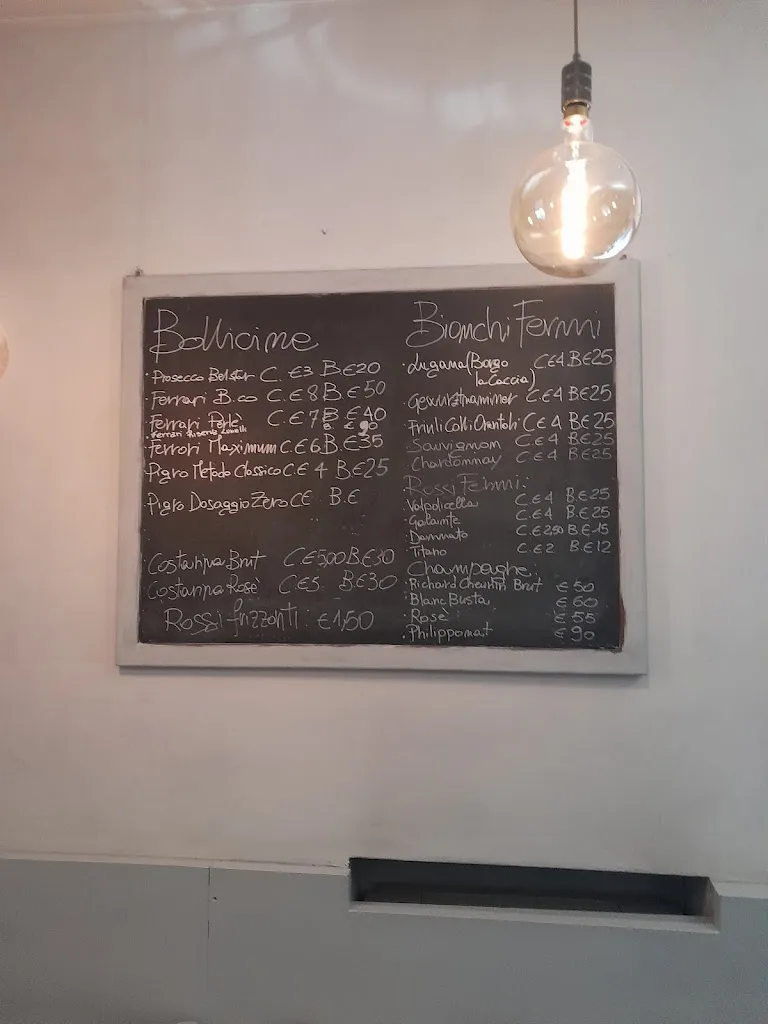 Bollicine
· Prosecco Belstar C. €3 B€20
· Ferrari B.co C.€8 B.€50
· Ferrari Perlè C.€7 B.€40
· Ferrari Riserva Lunelli B. €90
· Ferrari Maximum C€6 B.€35
Pigro Metodo Classico C€4 B€25
Pigro Dosaggio Zero C€ B.€
Costaripa Brut C€5,00 B.€30
Costaripa Rosè C.€5. B.€30
Rossi frizzanti: €1,50
Bianchi Fermi
· Lugana (Borgo la Caccia) C€4. B€25
· Gewurztraminer C.€4 B€25
· Friuli Colli Orientali C€4 B€25
· Sauvignon C.€4 B€25
· Chardonnay C.€4 B€25
Rossi Fermi:
· Valpolicella C.€4 B€25
· Galante C.€4 B.€25
· Dannato C.€2,50 B.€15
· Titano C.€2 B€12
Champagne:
· Richard Cheurlin Brut €50
· Blanc Busta €60
· Rosè €55
· Philipponat €90